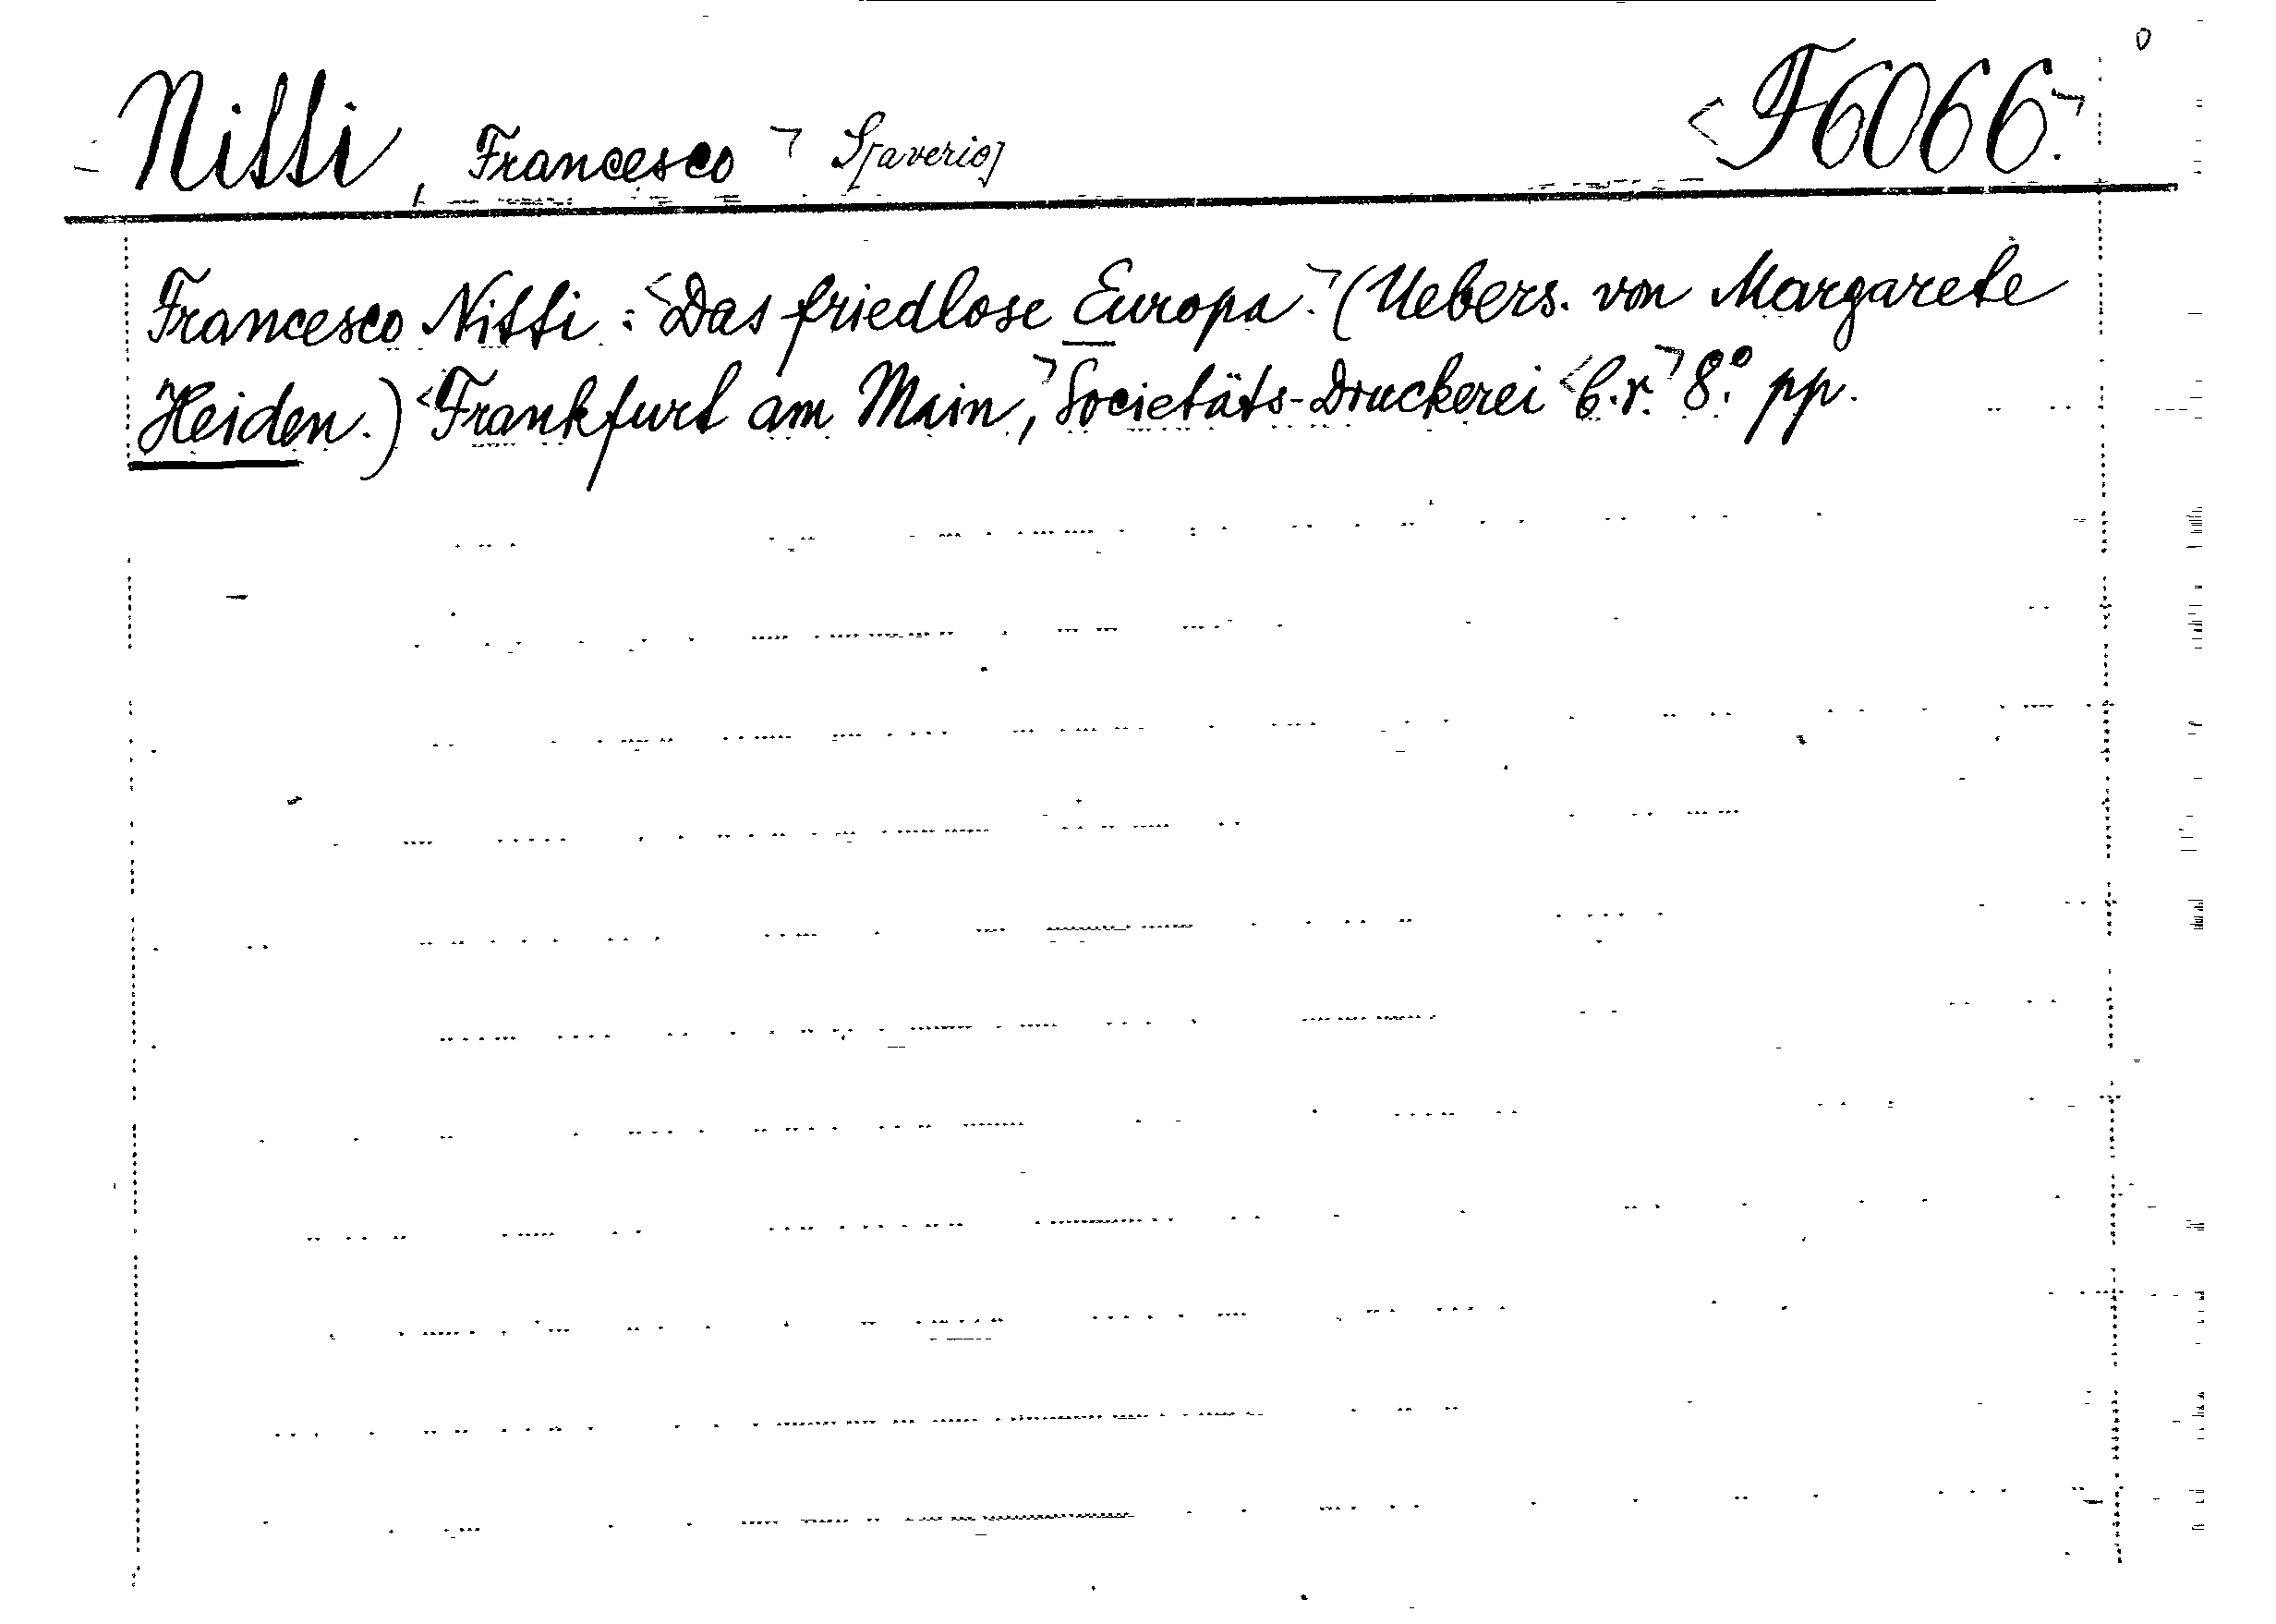 Nitti, Francesco S[averio] F6066.
Francesco Nitti: Das friedlose Europa. (Uebers. von Margarete
Heiden.) Frankfurt am Main, Societäts-Druckerei 8.° pp.